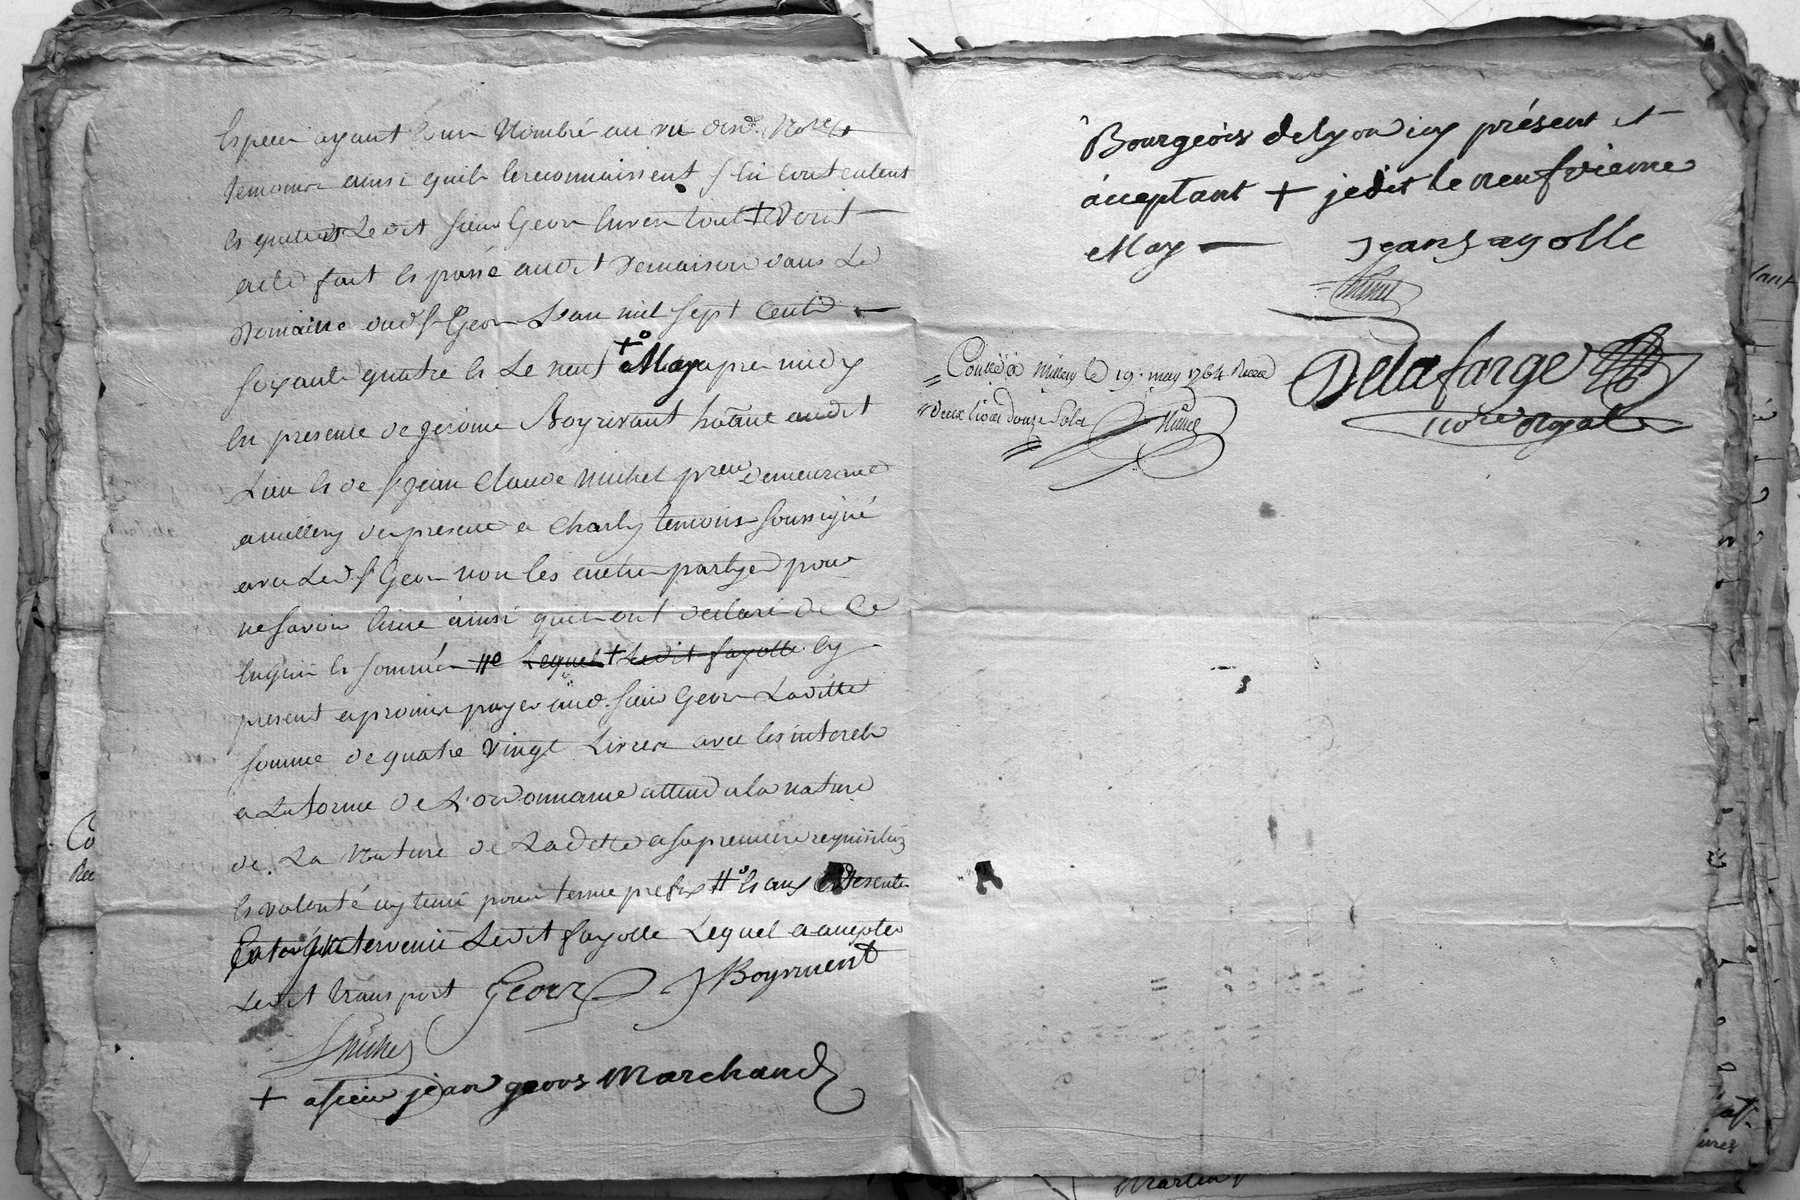 Especes ayant cours Nombré au vu dud. No.re et
temoins ainsi quils le reconnaissent s'en contentent
et quittent Ledit sieur Geors + Dont
acte fait et passé audit Demaison dans Le
Domaine dud. Sr Geors L'an mil sept Cent
soixante quatre et Le neuf + May apres midy
En presence de gerome Boyrivant audit
Lieu et de Sr jean Claude Michel demeurant
a millery de presence a Charly temoins soussignés
avec Led. Sr Geors non les autres partyes pour
ne savoir Ecrire ainsi quils ont declaré de Ce
Enquis et sommés # Lequel + Ledit fayolle Cy
present a promis payer aud. sieur Geors Laditte
somme de quatre vingt Livres avec les interets
a La forme de L'ordonnance attendu la nature
de La Nature de La dette a sa premiere requisition
et volonté cy tenu pour terme prefix # et aux presentes
Est intervenu Ledit fayolle Lequel a accepté
Ledit transport Geors J Boyrivent
Michel
+ a sieur jean geors Marchand
Bourgeois de lyon icy présent et
acceptant + je dis le neufvieme
May Jean fayolle
Michel
Conllé a Millery le 19. may 1764 Receu
deux livres douze sols
Delafarge
no.re Royal
Co
Rec
tant
ivres